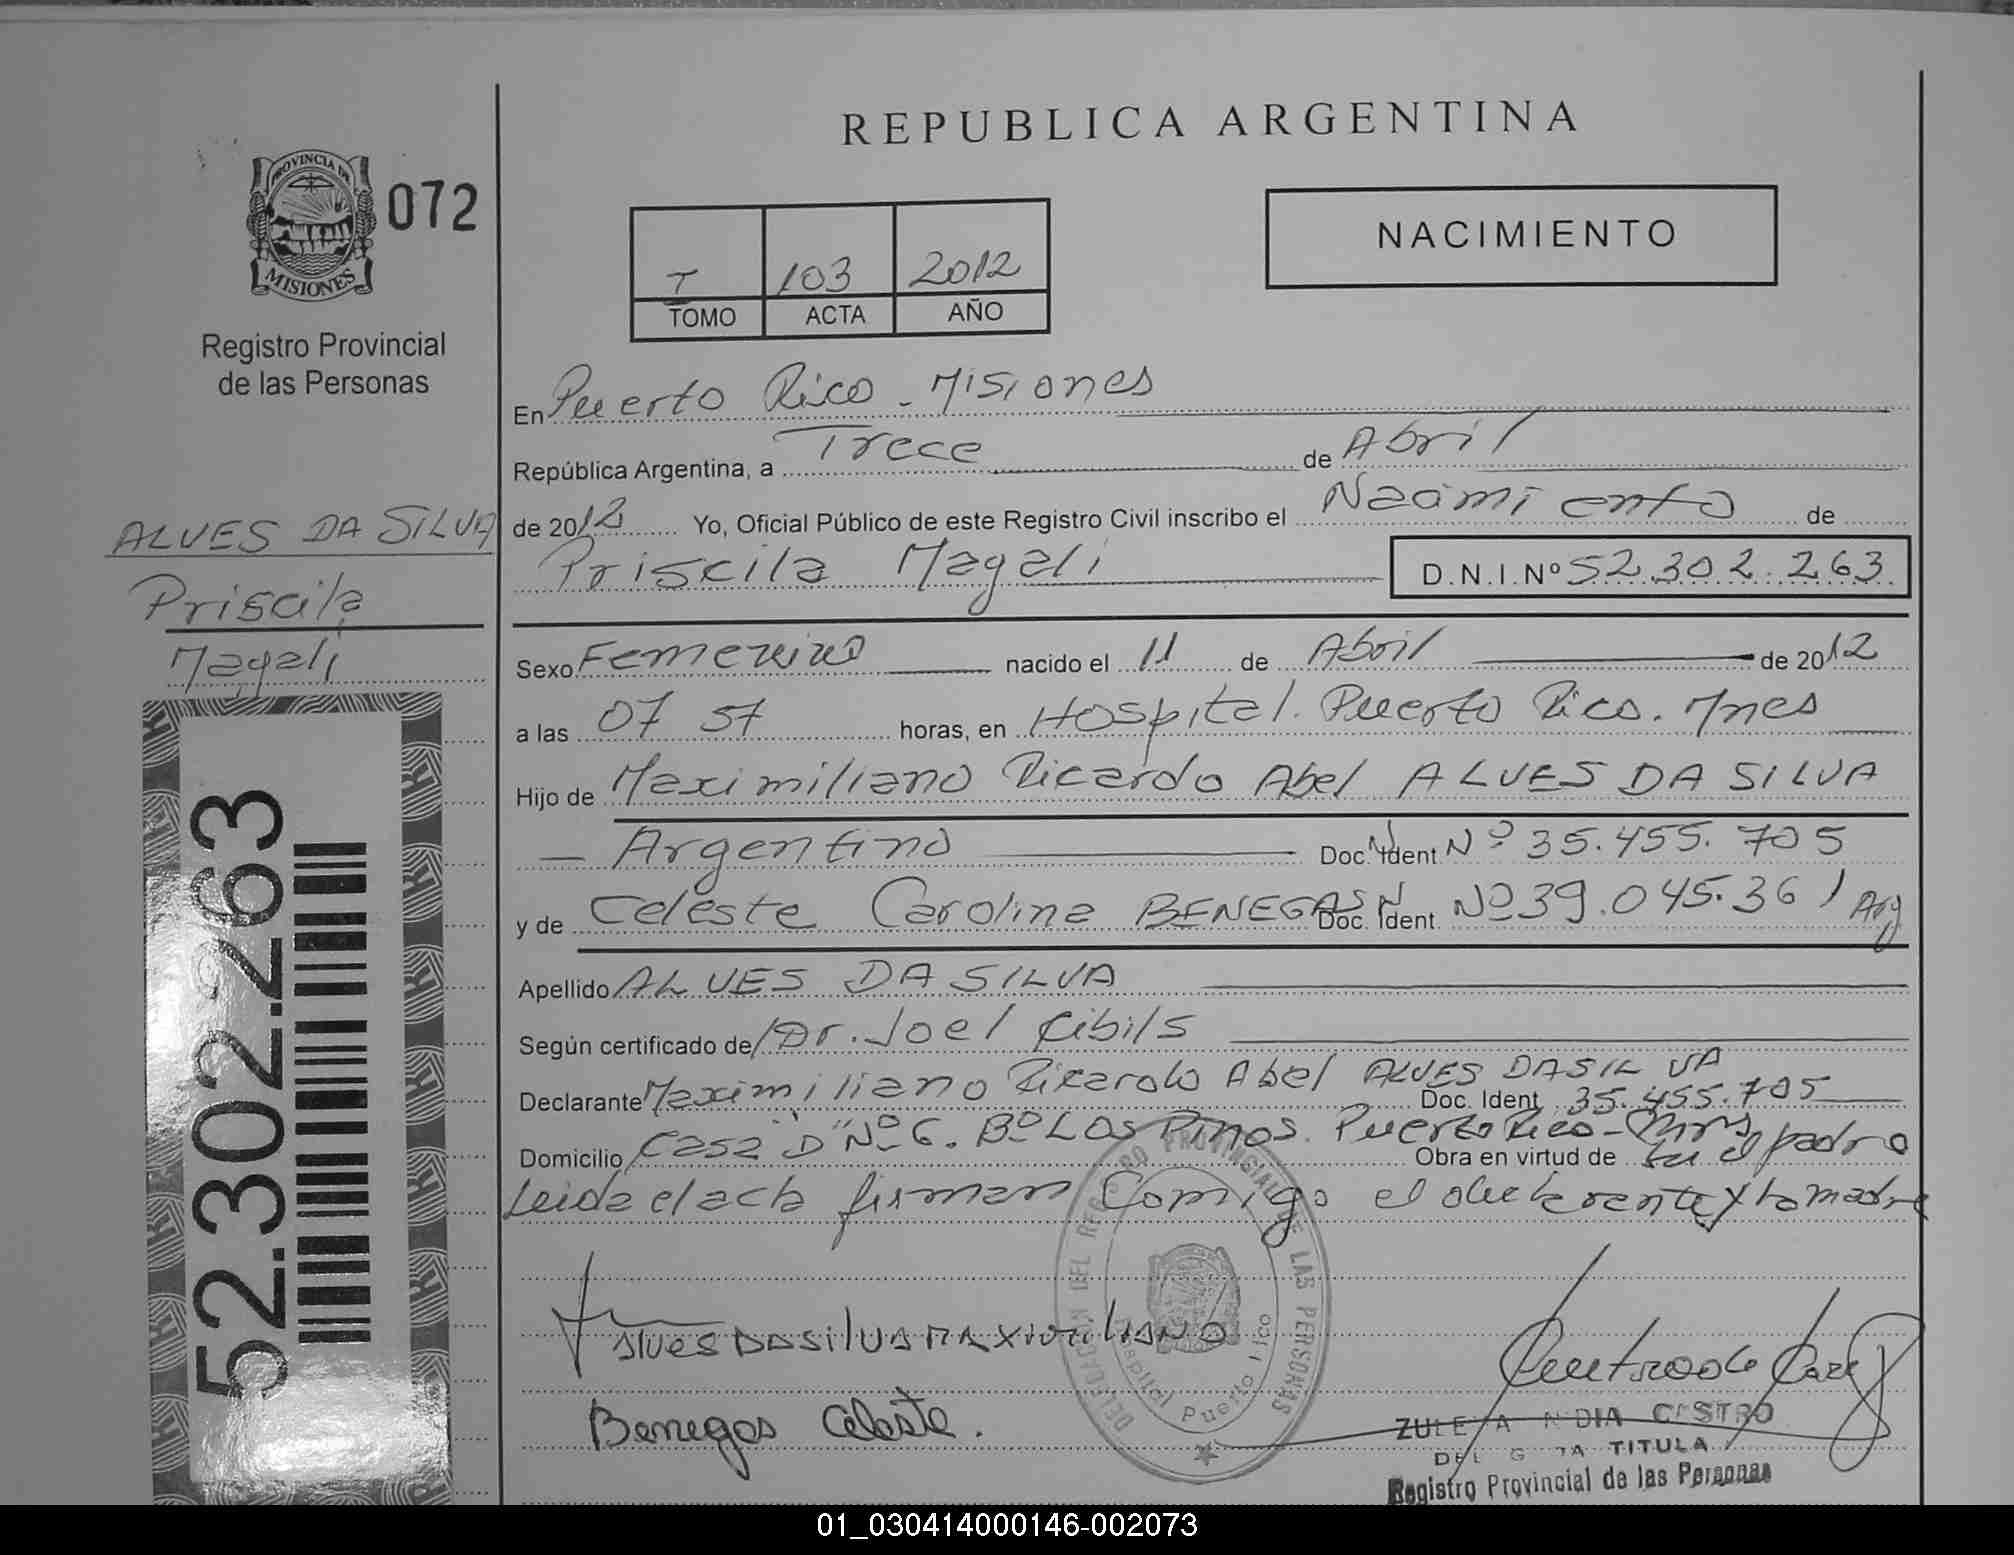 REPUBLICA ARGENTINA
PROVINCIA DE
MISIONES
072
Registro Provincial
de las Personas
T 103 2012
TOMO ACTA AÑO
NACIMIENTO
En Puerto Rico - Misiones
República Argentina, a Trece de Abril
de 2012 Yo, Oficial Público de este Registro Civil inscribo el Nacimiento de
Priscila Magali D.N.I.Nº 52.302.263
ALVES DA SILVA
Priscila
Magali
Sexo Femenino nacido el 11 de Abril de 2012
a las 07 57 horas, en Hospital. Puerto Rico. Mnes
Hijo de Maximiliano Ricardo Abel ALVES DA SILVA
- Argentino Doc. Ident Nº 35.455.705
y de Celeste Carolina BENEGAS Doc. Ident. Nº 39.045.361 Arg
Apellido ALVES DA SILVA
Según certificado de Dr. Joel Cibils
Declarante Maximiliano Ricardo Abel ALVES DA SILVA
Doc. Ident. 35.455.705
Domicilio Casa "D" Nº 6. Bº Los Pinos. Puerto Rico - Mnes
Obra en virtud de ser el padre
Leida el acta firman Comigo el declarante y la madre
52.302.263
Alves DA Silva MAXIMILIANO
Benegas Celeste.
DELEGACION DEL REGISTRO PROVINCIAL DE LAS PERSONAS
Hospital Puerto Rico
CASTRO
TITULA
Registro Provincial de las Personas
01_030414000146-002073